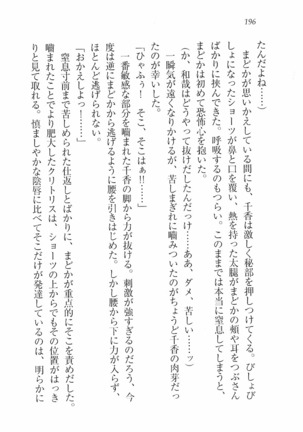 196
たんだよね……)
　まどかが思いかえしている間にも、千香は激しく秘部を押しつけてくる。びしょび
しょになったショーツが鼻と口を覆い、熱を持った太腿がまどかの頬や耳をつぶさん
ばかりに挟んできた。呼吸するのもつらい。このままでは本当に窒息してしまうと、
まどかは初めて恐怖心を抱いた。
(か、和哉はどうやって抜けだしたんだっけ……ああ、ダメ、苦しい……ッ)
　一瞬気が遠くなりかけるが、苦しまぎれに噛みついたのがちょうど千香の肉芽だっ
たのが幸いした。
「ひゃふぅー！　そこ、そこはぁ！……」
　一番敏感な部分を噛まれた千香の脚から力が抜ける。刺激が強すぎるのだろう、今
度は逆にまどかから逃げるように腰を引きはじめた。しかし腰から下に力が入らず、
ほとんど逃げられない。
「おかえしよっ！……」
　窒息寸前まで苦しめられた仕返しとばかりに、まどかが重点的にそこを責めだした。
噛まれたことでより肥大したクリトリスは、ショーツの上からでもその位置がはっき
りと見て取れる。慎ましやかな陰唇に比べてそこだけが発達しているのは、明らかに